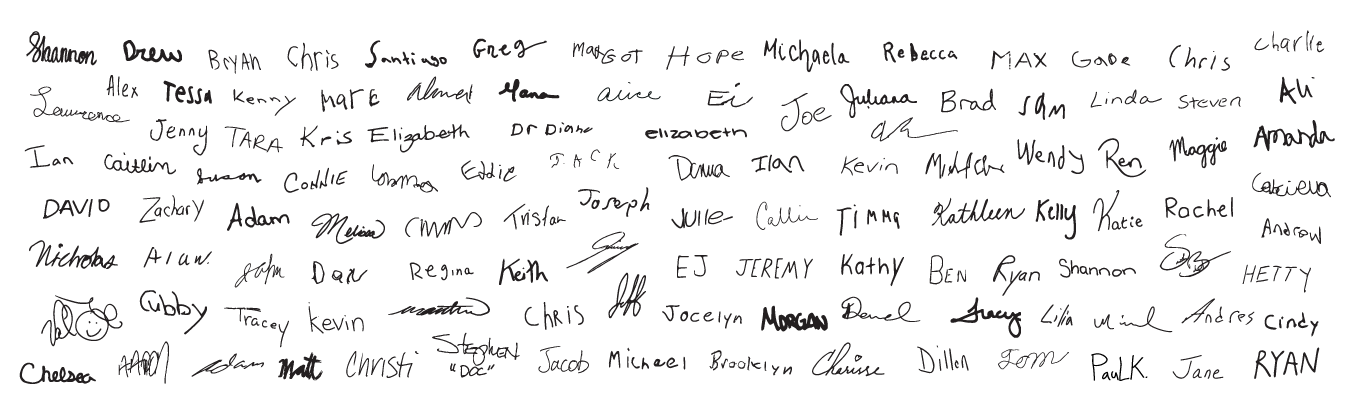 Shannon Drew Bryan Chris Santiago Greg Margot Hope Michaela Rebecca MAX Gabe Chris Charlie
Lawrence Alex Tessa Kenny Marc Ahmed Hana alice Ei Joe Juliana Brad sam Linda Steven Ali
Jenny TARA Kris Elizabeth Dr Diane elizabeth Amanda
Ian Caitlin Susan CONNIE Eddie JACK Donna Ilan Kevin Wendy Ren Maggie
DAVID Zachary Adam Melissa Tristan Joseph JULIE Callin TIMMA Kathleen Kelly Katie Rachel Gabriella
Nicholas Alan John Dan Regina Keith EJ JEREMY Kathy BEN Ryan Shannon HETTY Andrew
Cubby Tracey Kevin Chris Jeff Jocelyn MORGAN Daniel Tracy Lilia Andres Cindy
Chelsea Adam Matt Christi Stephen "DOC" Jacob Michael Brooklyn Cherisse Dillon Tom Paul K. Jane RYAN